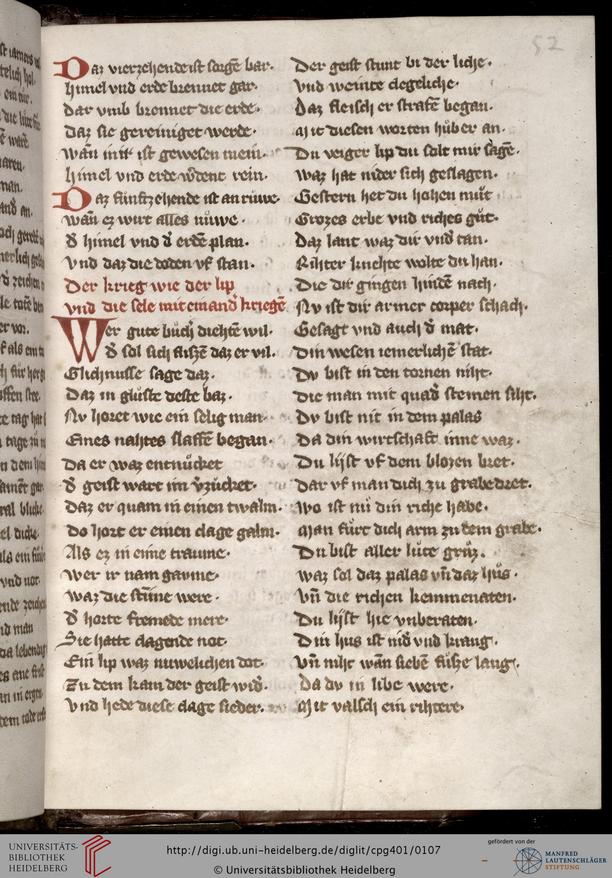 52
Daz vierzehende ist sorgē bar·
himel vnd erde brennet gar·
Dar vmb brennet die erde·
daz sie gereiniget werde·
wan ist gewesen mein·
himel vnd erde w͛dent rein·
Daz funftzehende ist an rūwe·
wan ez wirt alles nuwe·
d͛ himel vnd d͛ erdē plan·
Vnd daz die doden vf stan·
Der krieg wie der lip
vnd die sele mit einand͛ kriegē
Wer gute buch dichtē wil·
d͛ sol sich flizē daz er vil·
Glichnusse sage daz·
Daz in gluste deste baz·
Nv horet wie ein selig man·
Eines nahtes slaffē began·
Da er waz entnucket
d͛ geist wart im v͛zucket·
Daz er quam in einen twalm·
Do hort er einen clage galm·
Als ez in eime traume·
wer ir nam gaume·
waz die stīme were·
d͛ horte fremede mere·
Sie hatte clagende not·
Ein lip waz nuwelichen dot·
Zu dem kam der geist wid͛·
Vnd hede diese clage sieder·
Der geist stunt bi der liche·
Vnd weinte clegeliche·
Daz fleisch er strafē began·
Mit diesen worten hub er an·
Du veiger lip du solt mir sagē·
waz hat nider dich geslagen·
Gestern het du hohen mut
Grozes erbe vnd riches gut·
Daz lant waz dir vnd͛tan·
Rihter knehte wolte du han·
Die dir gingen hindē nach·
Nv ist dir armer corper schach·
Gesagt vnd auch d͛ mat·
Din wesen iemerlichē stat·
Dv bist in den tornen niht·
Die man mit quad͛ steinen siht·
Dv bist nit in dem palas
Da din wirtschaft inne waz·
Du list vf dem blozen bret·
Dar vf man dich zu grabe dret·
Wo ist nu din riche habe·
Man furt dich arm zu dem grabe·
Du bist aller lute gruz·
waz sol daz palas vn̄ daz hus·
Vn̄ die richen kemmenaten·
Du list hie vnberaten·
Din hus ist nid͛ vnd krang·
Vn̄ niht wan siebē fusze lang·
Da du in libe were·
Mit valsch ein rihtere·
UNIVERSITÄTS-
BIBLIOTHEK
HEIDELBERG
http://digi.ub.uni-heidelberg.de/diglit/cpg401/0107
© Universitätsbibliothek Heidelberg
gefördert von der
MANFRED
LAUTENSCHLÄGER
STIFTUNG